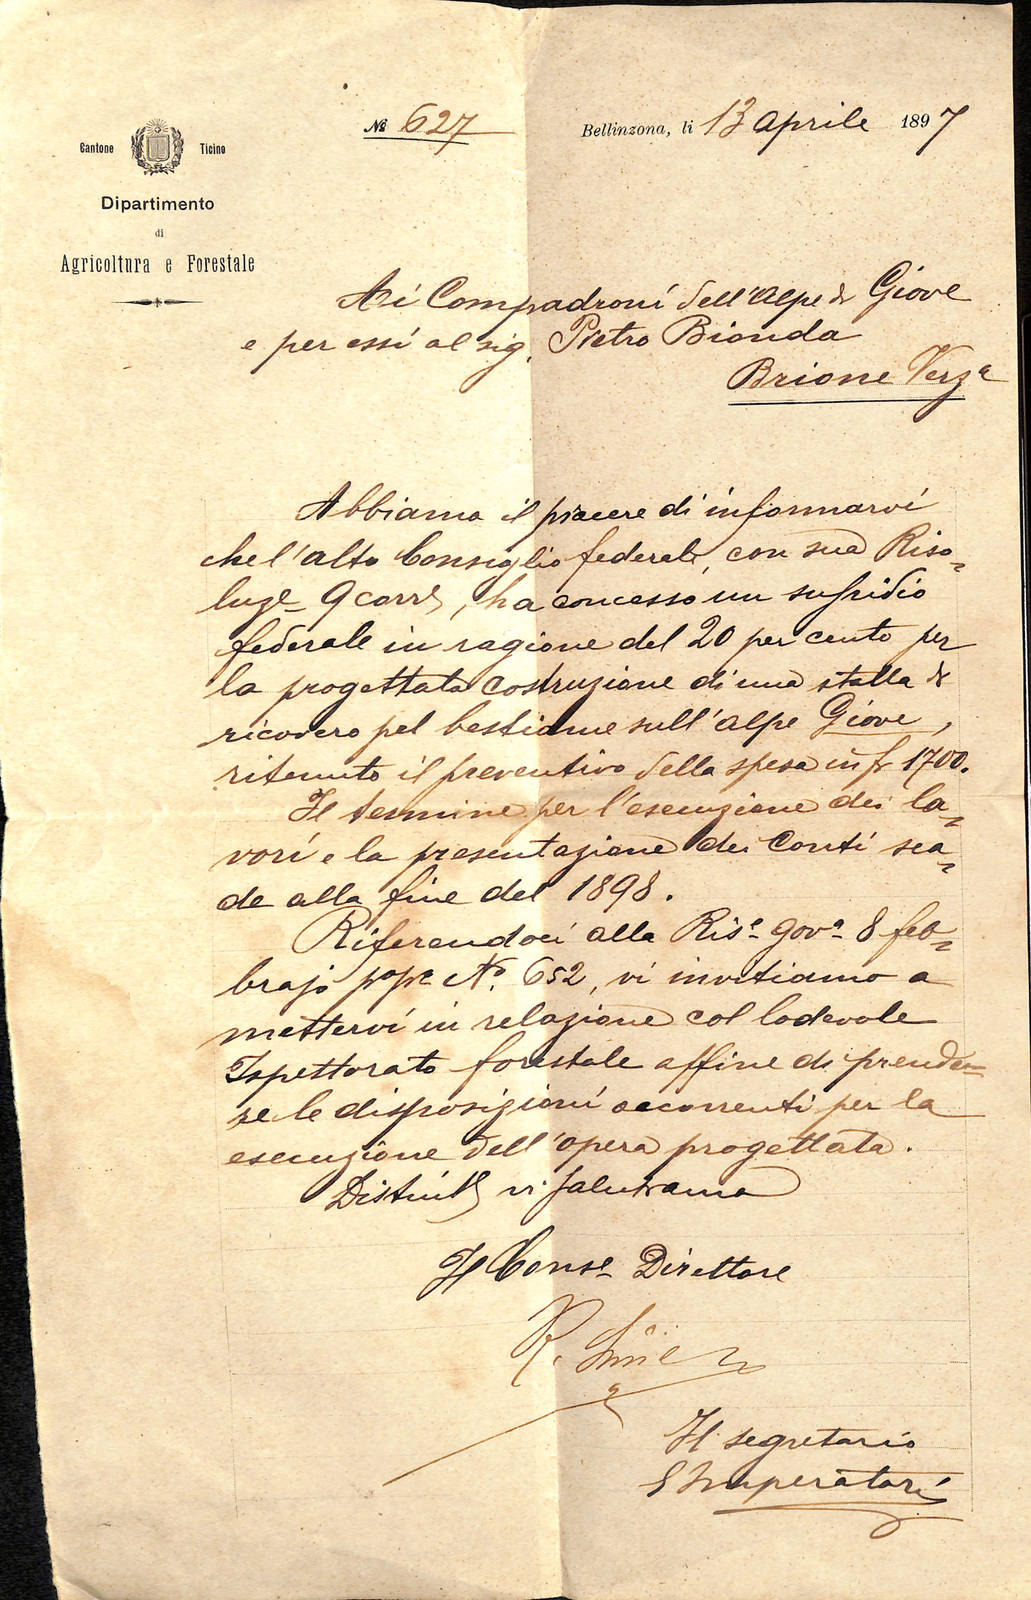 Nº 627
Bellinzona, li 13 aprile 1897
Cantone Ticino
Dipartimento
di
Agricoltura e Forestale
Ai Compadroni dell'alpe di Giove
e per essi al sig. Pietro Bionda
Brione Verzª
Abbiamo il piacere di informarvi
che l'alto Consiglio federale, con sua Riso-
luzᵉ 9 corrᵉ, ha concesso un sussidio
federale in ragione del 20 per cento per
la progettata costruzione di una stalla di
ricovero pel bestiame sull'alpe Giove,
ritenuto il preventivo della spesa in fr 1700.
Il termine per l'esecuzione dei la-
vori e la presentazione dei conti sca-
de alla fine del 1898.
Riferendoci alla Risᵉ govª 8 feb-
brajo pºpº Nº. 652, vi invitiamo a
mettervi in relazione col lodevole
Ispettorato forestale affine di prende-
re le disposizioni occorrenti per la
esecuzione dell'opera progettata.
Distintᵉ vi salutiamo
Il Consᵉ Direttore
R. Simen
Il segretario
Imperatori